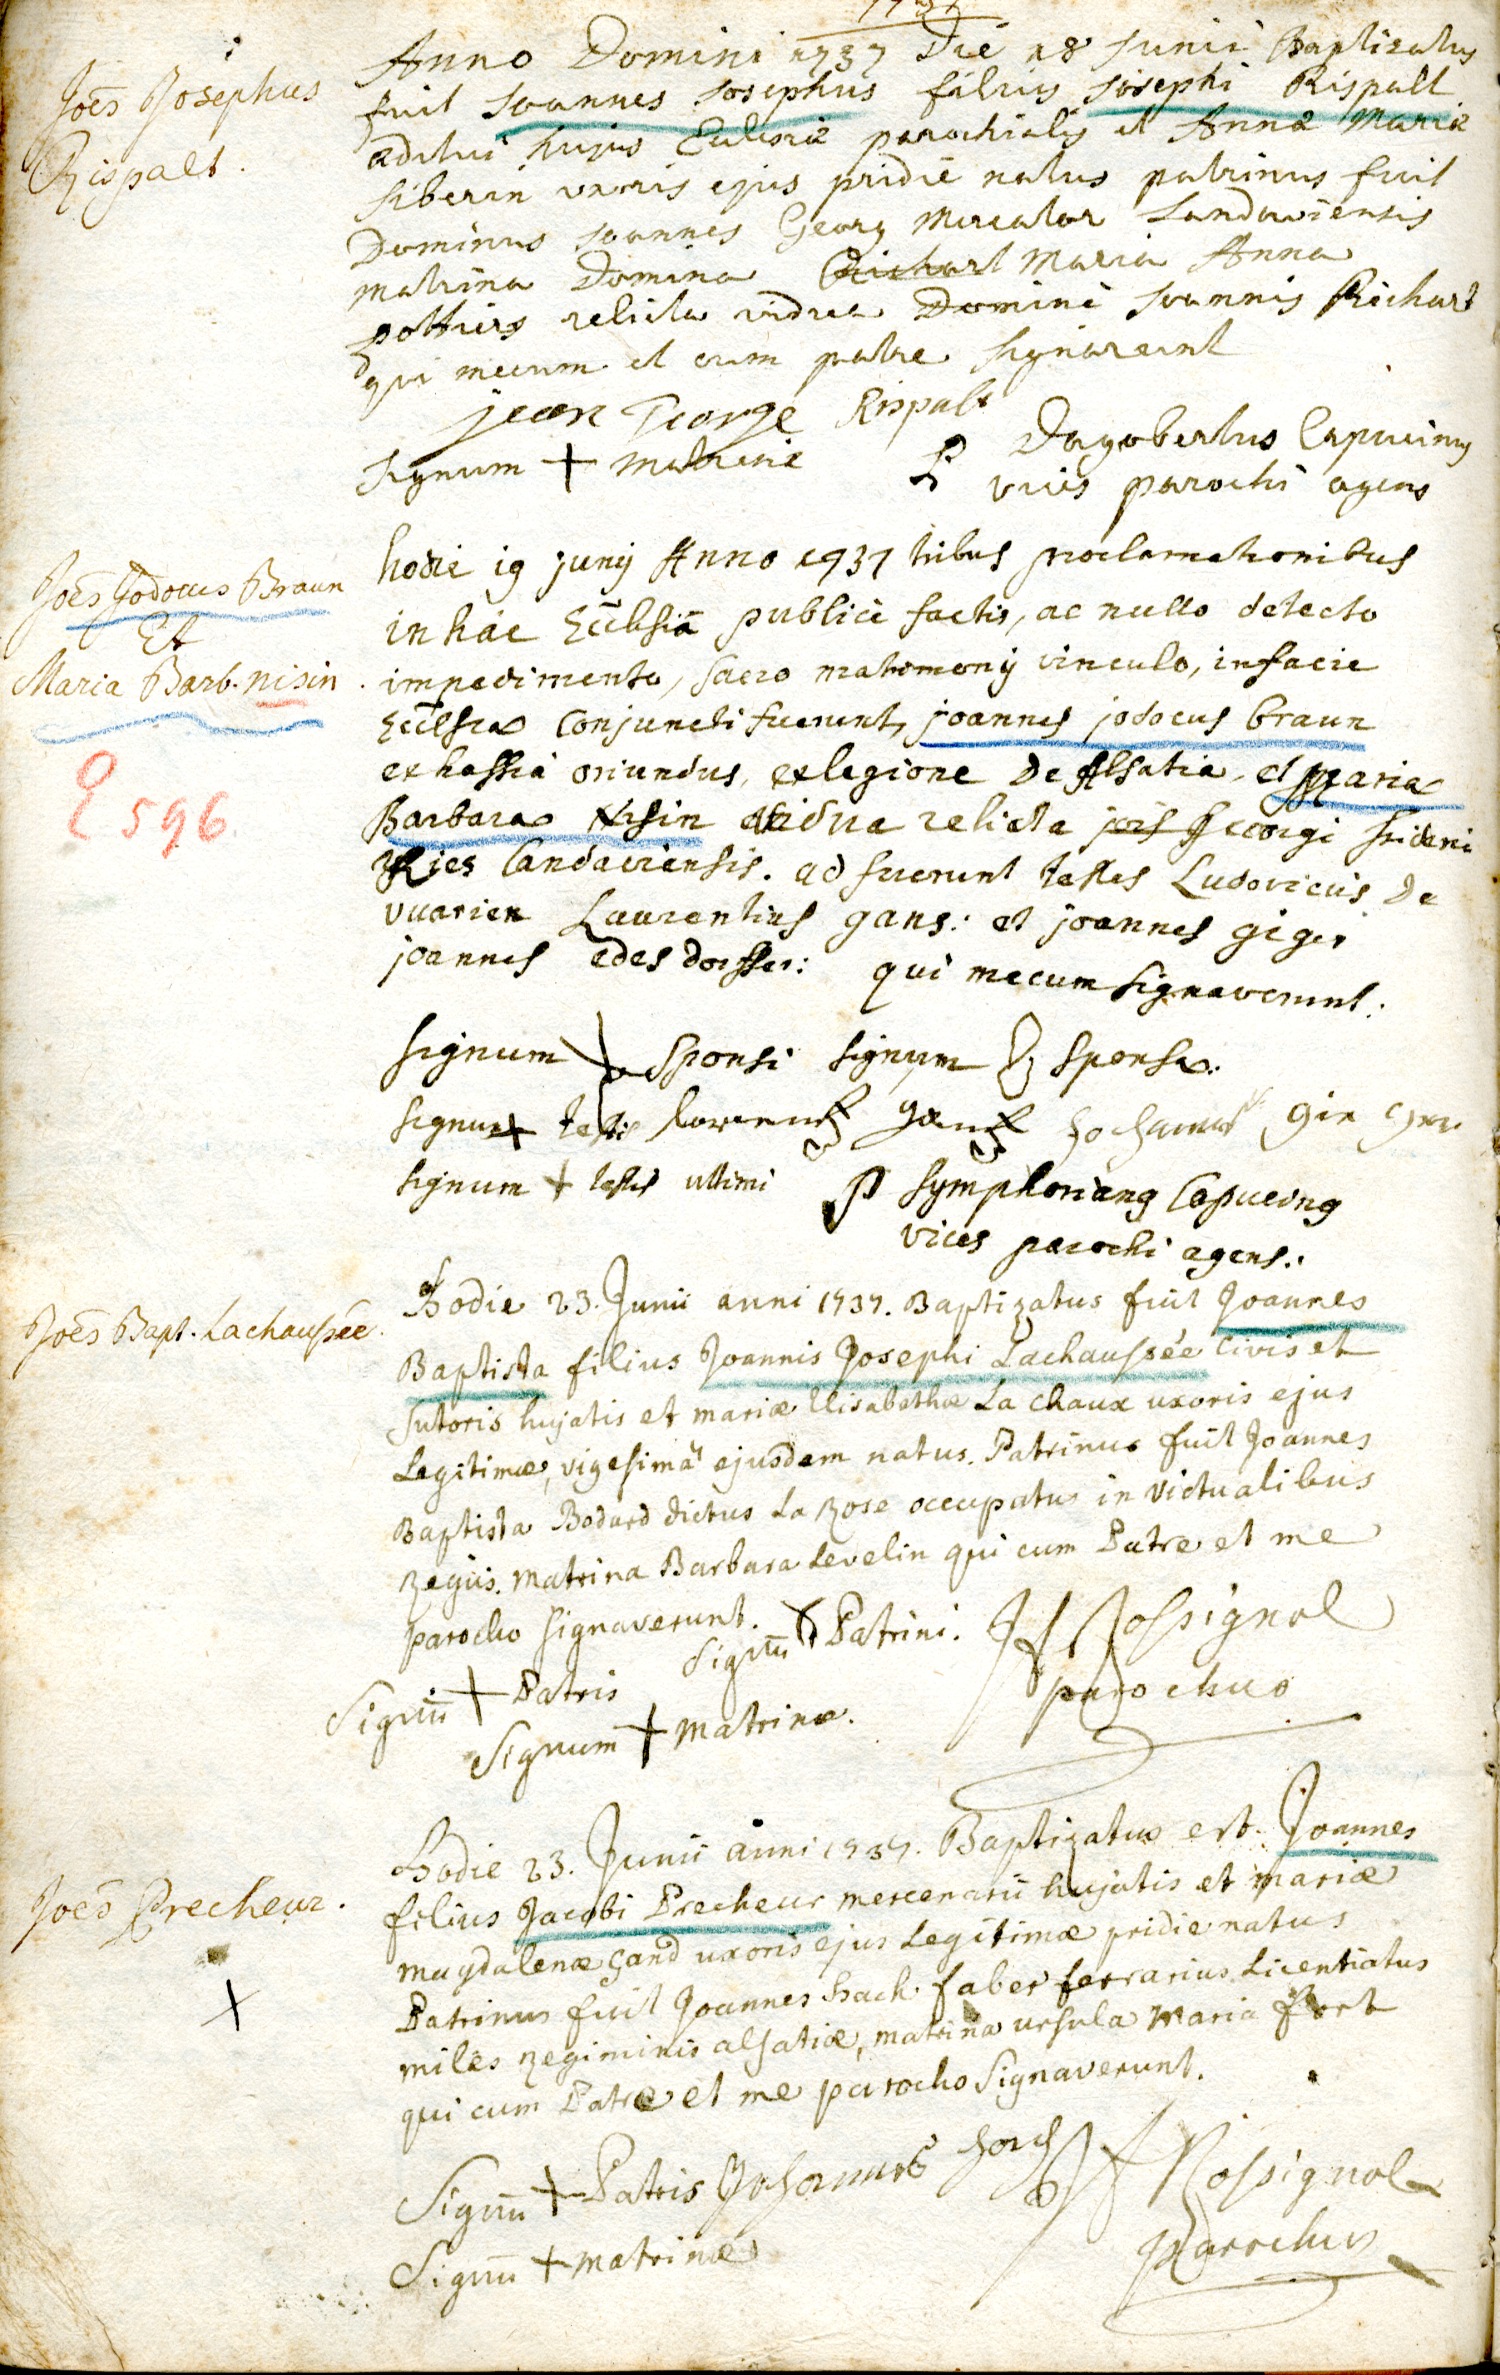 1737
Joēs Josephus
Rispalt.
Anno Domini 1737 Die 18 Junii Baptizatus
fuit Joannes Josephus filius Josephi Rispalt
aeditui hujus Ecclesiæ parochialis et Annæ Mariæ
Siberin uxoris ejus pridie natus patrinus fuit
Dominus Joannes Georg Mercator Landaviensis
matrina Domina Richart Maria Anna
pottiers relicta vidua Domini Joannis Richart
qui mecum et cum patre signarunt
jean George Rispalt
Signum + Matrinæ
P Dagobertus Capucinus
vices parochi agens
Joēs Jodocus Braun
Et
Maria Barb. nisin.
E 596
hodie 19 junij Anno 1737 tribus proclamationibus
in hac Ecclesiā publicè factis, ac nullo detecto
impedimento, sacro matrimonij vinculo, in facie
Ecclesiæ Conjuncti fuerunt, joannes jodocus braun
ex hassia oriundus, ex legione De Alsatia, et Maria
Barbara Nisin vidua relicta jois Georgi friderici
Ries Landaviensis. adfuerunt testes Ludovicus De
vuarien Laurentius gans: et joannes giger
joannes edesdorffer: qui mecum signaverunt:
signum + sponsi signum sponsæ:
signum + testis lorentz gantz
signum + testis ultimi P Symphorianus Capucinus
vices parochi agens.
Joēs Bapt. Lachaussée.
Hodie 23. Junii anni 1737. Baptizatus fuit Joannes
Baptista filius Joannis Josephi Lachaussée Civis et
Sutoris hujatis et mariæ Elisabethæ La Chaux uxoris ejus
Legitimæ, vigesimâ ejusdem natus. Patrinus fuit Joannes
Baptista Bodard dictus La Rose occupatus in victualibus
Regiis. matrina Barbara Levelin qui cum Patre et me
parocho signaverunt.
Signū + Patrini. JF Rossignol
parochus
Signū + Patris
Signum + matrinæ.
Joēs Precheur.
+
Hodie 23. Junii anni 1737. Baptizatus est Joannes
filius Jacobi Precheur mercenarii hujatis et mariæ
magdalenæ Sand uxoris ejus Legitimæ pridie natus
Patrinus fuit Joannes hach faber ferrarius Licentiatus
miles Regiminis alsatiæ, matrina ursula Maria fort
qui cum Patre et me parocho signaverunt.
Signū + Patris Johannes JF Rossignol
Parochus
Signū + matrinæ